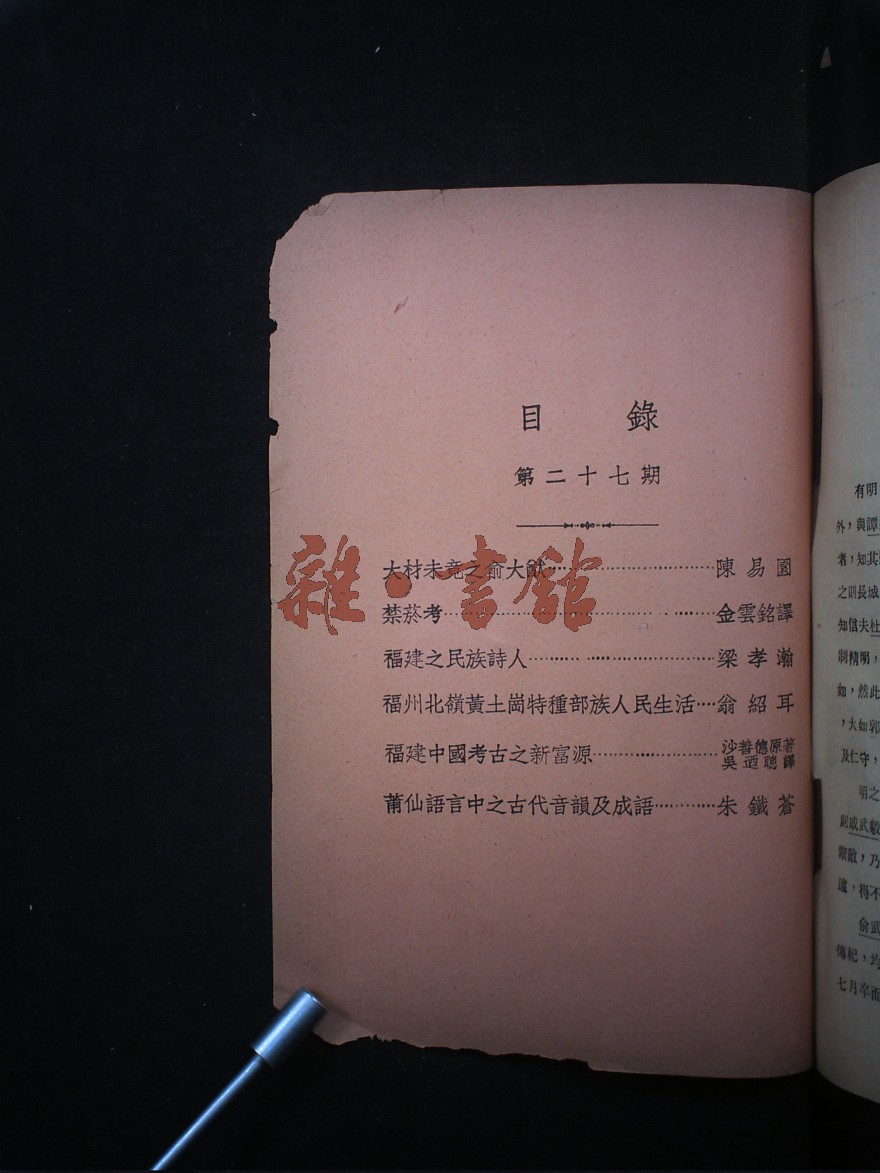 目錄
第二十七期
大材未竟之俞大猷 陳易園
禁菸考 金雲銘譯
福建之民族詩人 梁孝瀚
福州北嶺黃土崗特種部族人民生活 翁紹耳
福建中國考古之新富源 沙善德原著
吳迺聰譯
莆仙語言中之古代音韻及成語 朱鐵蒼
雜·書館
有明
外，與譚
者，知其
之則長城
知信夫杜
制精明，
如，然此
，大如郭
及仁守，
明之
戚武毅
禦敵，乃
遠，得不
俞武
傳紀，均
七月卒而